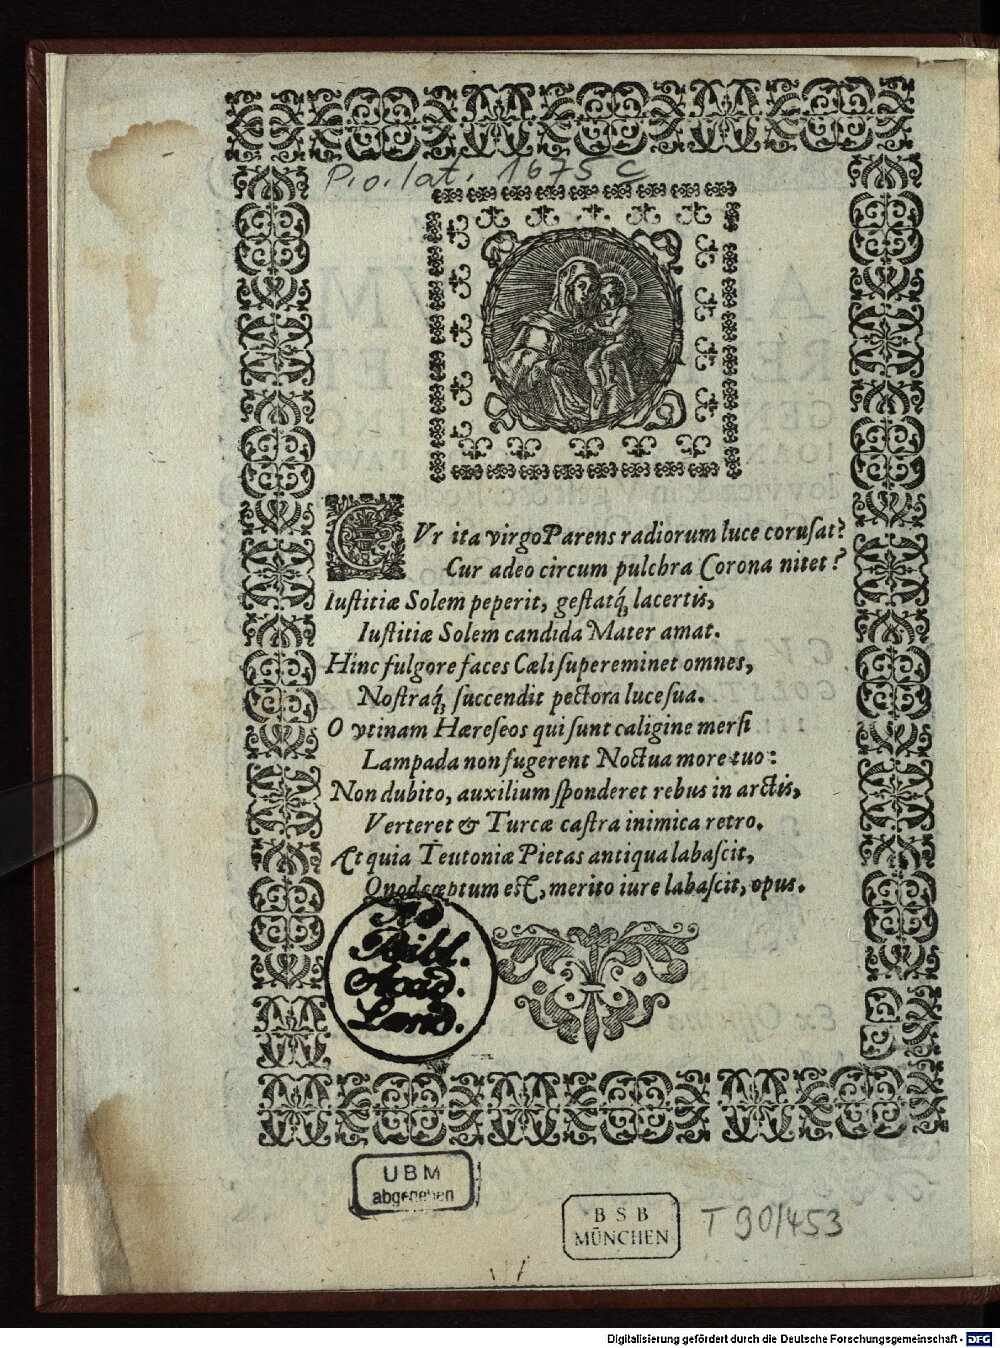 P.o.lat. 1675 C
CVr ita virgo Parens radiorum luce corusat?
Cur adeo circum pulchra Corona nitet?
Iustitiæ Solem peperit, gestatq́, lacertis,
Iustitiæ Solem candida Mater amat.
Hinc fulgore faces Cæli supereminet omnes,
Nostraq́, succendit pectora luce sua.
O vtinam Hæreseos qui sunt caligine mersi
Lampada non fugerent Noctua more tuo:
Non dubito, auxilium sponderet rebus in arctis,
Verteret & Turcæ castra inimica retro.
Æt quia Teutoniæ Pietas antiqua labascit,
Quod cœptum est, merito iure labascit, opus.
Ad
Bibl.
Acad.
Land.
UBM
abgegeben
BSB
MÜNCHEN
T 90/453
Digitalisierung gefördert durch die Deutsche Forschungsgemeinschaft - DFG